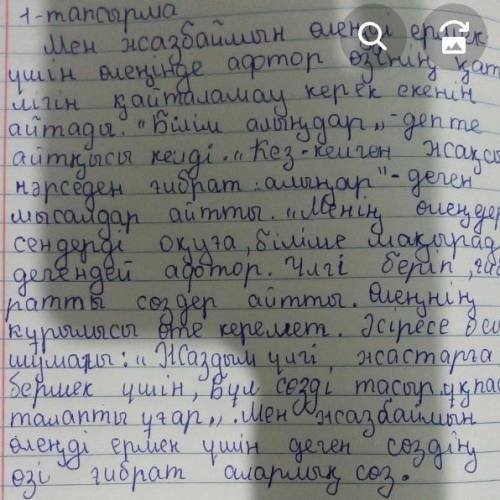 1-тапсырма
Мен жазбаймын өлеңді ермек
үшін өлеңінде афтор өзінің қат
лігін қайталамау керек екенін
айтады. "Білім алыңдар„ -депте
айтқысы келді. „Кез-келген жақсы
нәрседен ғибрат алыңар" -деген
мысалдар айтты. „Менің өлеңдер
сендерді оқуға, білімге шақырад
дегендей афтор. Үлгі беріп, ғаб
ратты сөздер айтты. Өлеңнің
құрылысы өте керемет. Әсіресе осы
шумағы: „ Жаздым үлгі жастарға
бермек үшін, Бұл сөзді тасыр ұқпас
талапты ұғар„. Мен жазбаймын
өлеңді ермек үшін деген сөздің
өзі ғибрат аларлық сөз.